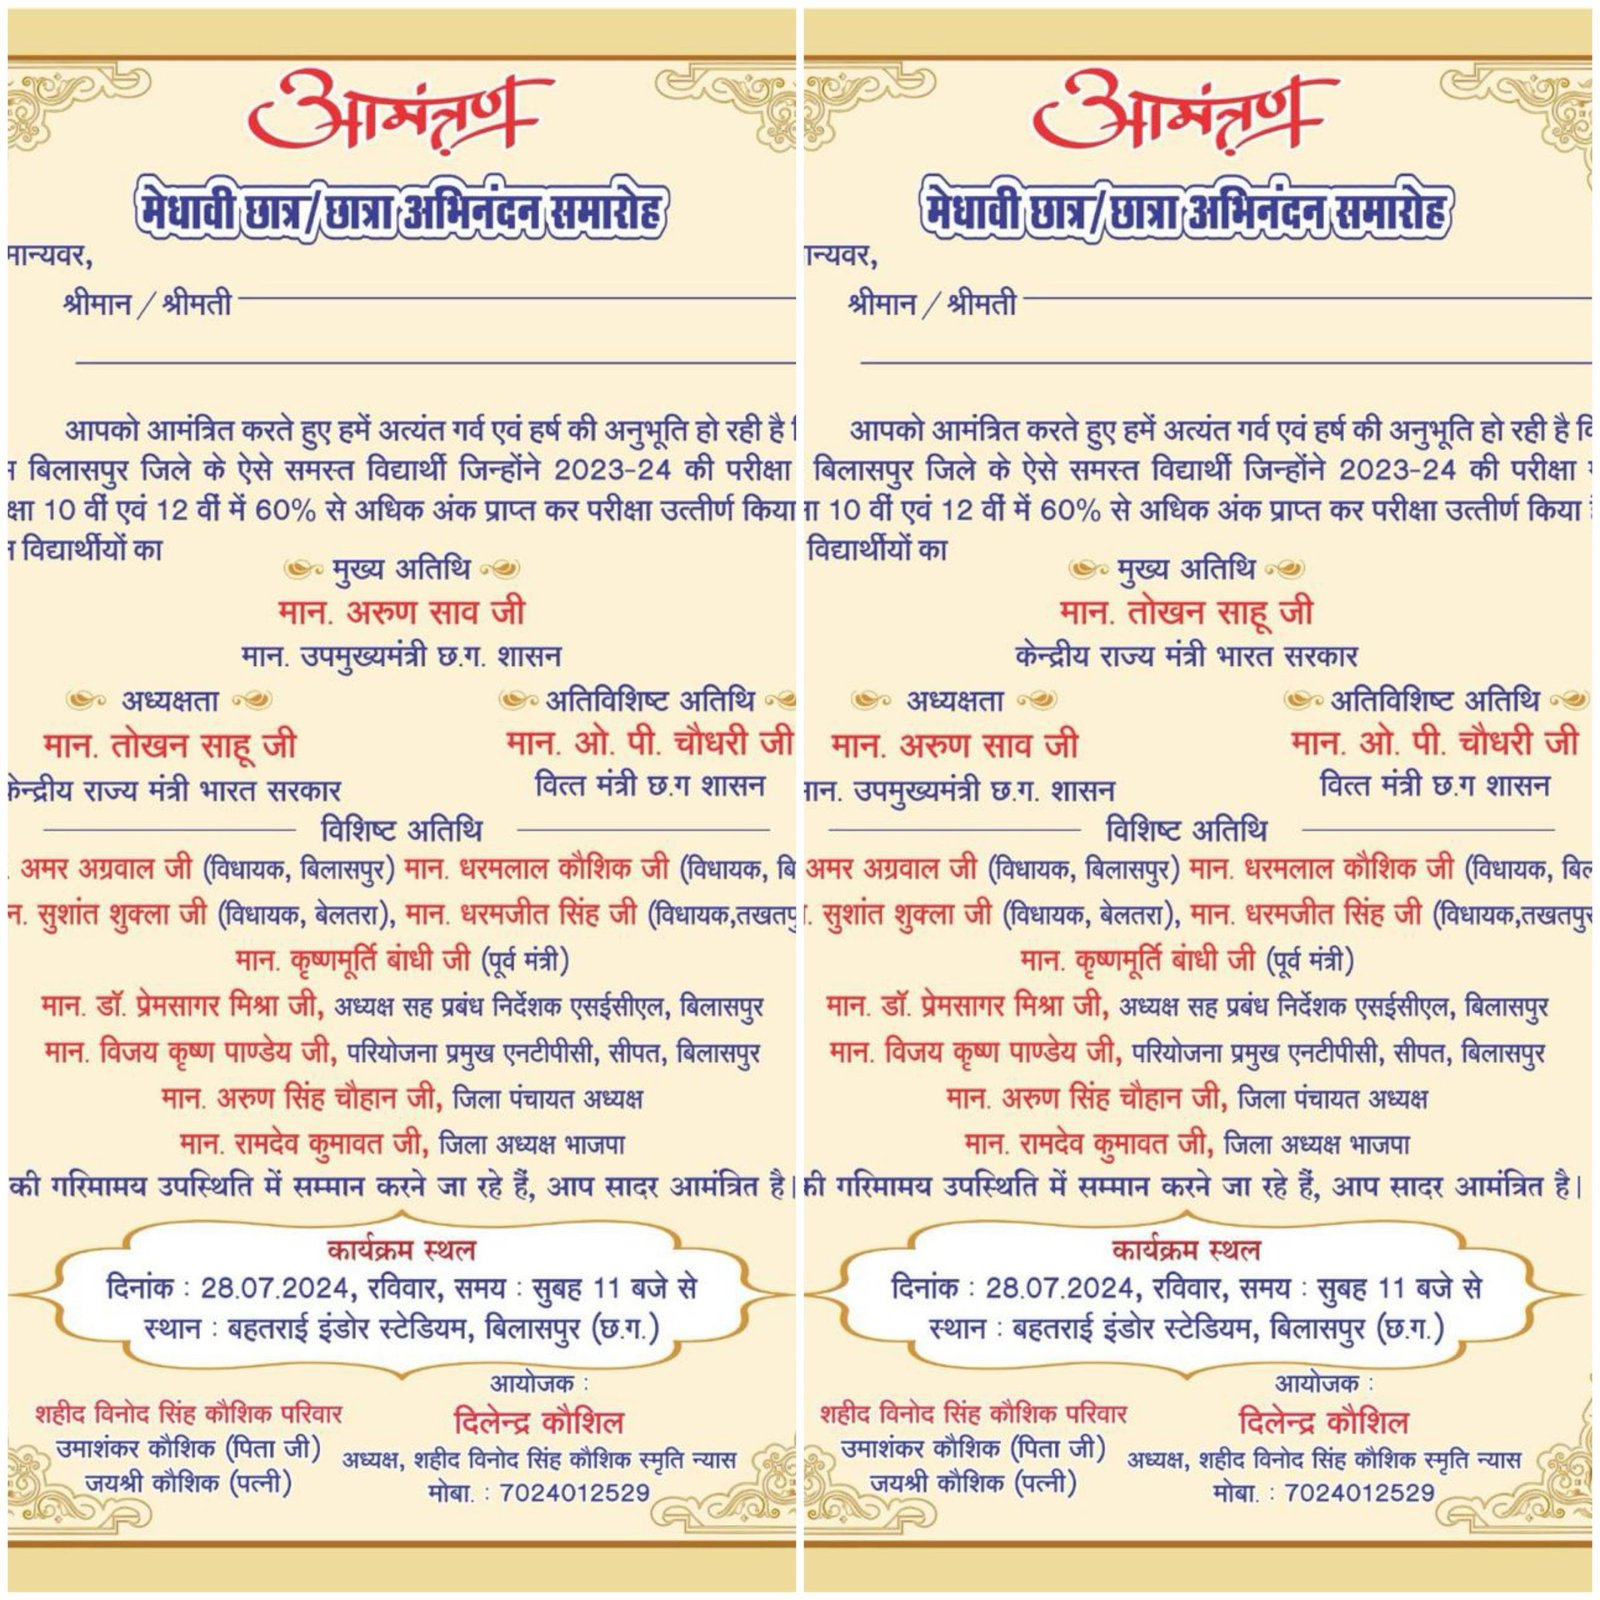 आमंत्रण
मेधावी छात्र/छात्रा अभिनंदन समारोह
मान्यवर,
श्रीमान / श्रीमती
आपको आमंत्रित करते हुए हमें अत्यंत गर्व एवं हर्ष की अनुभूति हो रही है
बिलासपुर जिले के ऐसे समस्त विद्यार्थी जिन्होंने 2023-24 की परीक्षा
10 वीं एवं 12 वीं में 60% से अधिक अंक प्राप्त कर परीक्षा उत्तीर्ण किया
विद्यार्थीयों का
मुख्य अतिथि
मान. अरुण साव जी
मान. उपमुख्यमंत्री छ.ग. शासन
अध्यक्षता
मान. तोखन साहू जी
केन्द्रीय राज्य मंत्री भारत सरकार
अतिविशिष्ट अतिथि
मान. ओ. पी. चौधरी जी
वित्त मंत्री छ.ग शासन
विशिष्ट अतिथि
अमर अग्रवाल जी (विधायक, बिलासपुर) मान. धरमलाल कौशिक जी (विधायक,
सुशांत शुक्ला जी (विधायक, बेलतरा), मान. धरमजीत सिंह जी (विधायक,तखतपु
मान. कृष्णमूर्ति बांधी जी (पूर्व मंत्री)
मान. डॉ. प्रेमसागर मिश्रा जी, अध्यक्ष सह प्रबंध निर्देशक एसईसीएल, बिलासपुर
मान. विजय कृष्ण पाण्डेय जी, परियोजना प्रमुख एनटीपीसी, सीपत, बिलासपुर
मान. अरुण सिंह चौहान जी, जिला पंचायत अध्यक्ष
मान. रामदेव कुमावत जी, जिला अध्यक्ष भाजपा
की गरिमामय उपस्थिति में सम्मान करने जा रहे हैं, आप सादर आमंत्रित है।
कार्यक्रम स्थल
दिनांक : 28.07.2024, रविवार, समय : सुबह 11 बजे से
स्थान : बहतराई इंडोर स्टेडियम, बिलासपुर (छ.ग.)
शहीद विनोद सिंह कौशिक परिवार
उमाशंकर कौशिक (पिता जी)
जयश्री कौशिक (पत्नी)
आयोजक :
दिलेन्द्र कौशिल
अध्यक्ष, शहीद विनोद सिंह कौशिक स्मृति न्यास
मोबा. : 7024012529
आमंत्रण
मेधावी छात्र/छात्रा अभिनंदन समारोह
ान्यवर,
श्रीमान / श्रीमती
आपको आमंत्रित करते हुए हमें अत्यंत गर्व एवं हर्ष की अनुभूति हो रही है
बिलासपुर जिले के ऐसे समस्त विद्यार्थी जिन्होंने 2023-24 की परीक्षा
10 वीं एवं 12 वीं में 60% से अधिक अंक प्राप्त कर परीक्षा उत्तीर्ण किया
विद्यार्थीयों का
मुख्य अतिथि
मान. तोखन साहू जी
केन्द्रीय राज्य मंत्री भारत सरकार
अध्यक्षता
मान. अरुण साव जी
मान. उपमुख्यमंत्री छ.ग. शासन
अतिविशिष्ट अतिथि
मान. ओ. पी. चौधरी जी
वित्त मंत्री छ.ग शासन
विशिष्ट अतिथि
अमर अग्रवाल जी (विधायक, बिलासपुर) मान. धरमलाल कौशिक जी (विधायक, बिल
सुशांत शुक्ला जी (विधायक, बेलतरा), मान. धरमजीत सिंह जी (विधायक,तखतपुर
मान. कृष्णमूर्ति बांधी जी (पूर्व मंत्री)
मान. डॉ. प्रेमसागर मिश्रा जी, अध्यक्ष सह प्रबंध निर्देशक एसईसीएल, बिलासपुर
मान. विजय कृष्ण पाण्डेय जी, परियोजना प्रमुख एनटीपीसी, सीपत, बिलासपुर
मान. अरुण सिंह चौहान जी, जिला पंचायत अध्यक्ष
मान. रामदेव कुमावत जी, जिला अध्यक्ष भाजपा
की गरिमामय उपस्थिति में सम्मान करने जा रहे हैं, आप सादर आमंत्रित है।
कार्यक्रम स्थल
दिनांक : 28.07.2024, रविवार, समय : सुबह 11 बजे से
स्थान : बहतराई इंडोर स्टेडियम, बिलासपुर (छ.ग.)
शहीद विनोद सिंह कौशिक परिवार
उमाशंकर कौशिक (पिता जी)
जयश्री कौशिक (पत्नी)
आयोजक :
दिलेन्द्र कौशिल
अध्यक्ष, शहीद विनोद सिंह कौशिक स्मृति न्यास
मोबा. : 7024012529